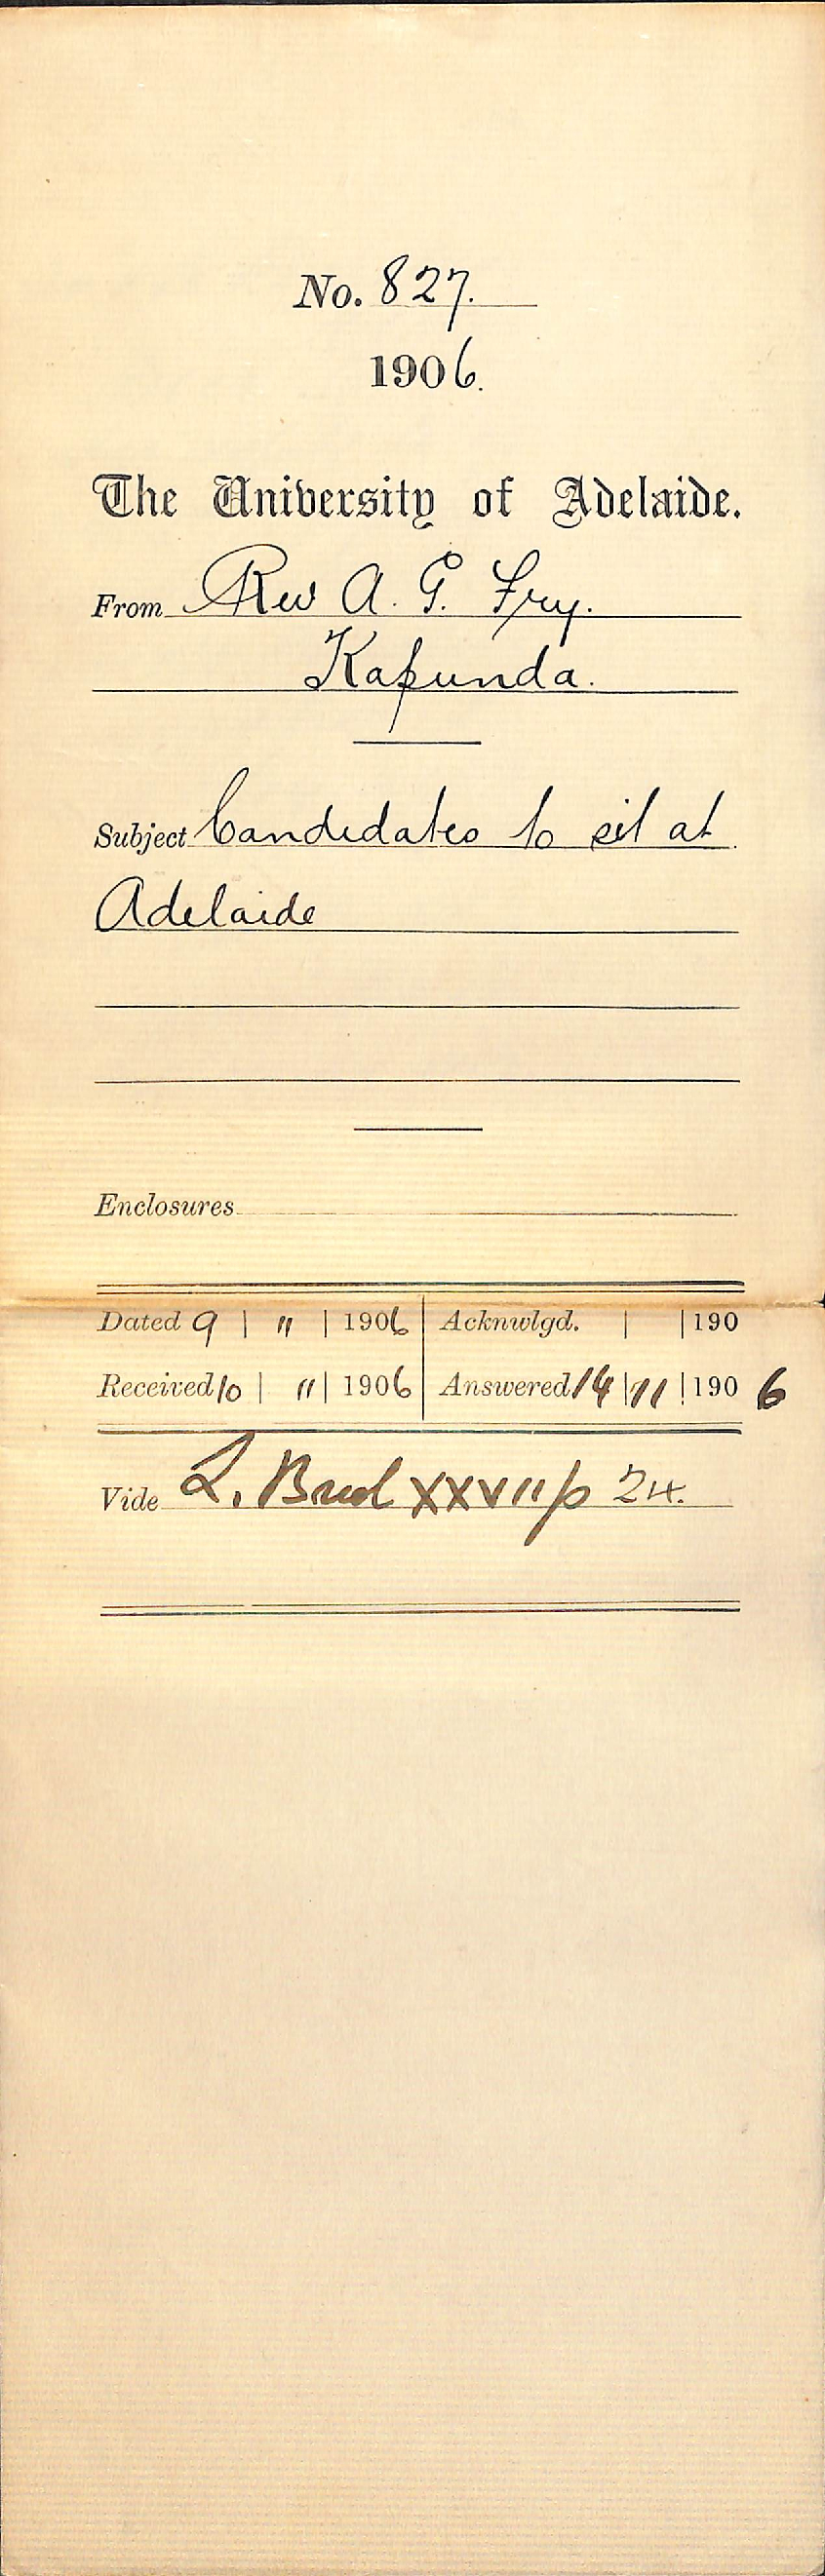 No. 827.
1906.
The University of Adelaide.
From Rev A. G. Fry.
Kapunda.
Subject Candidates to sit at
Adelaide
Enclosures
Dated 9 | 11 | 1906 Acknwlgd. | | 190
Received 10 | 11 | 1906 Answered 14 | 11 | 1906
Vide L. XXVII p 24.